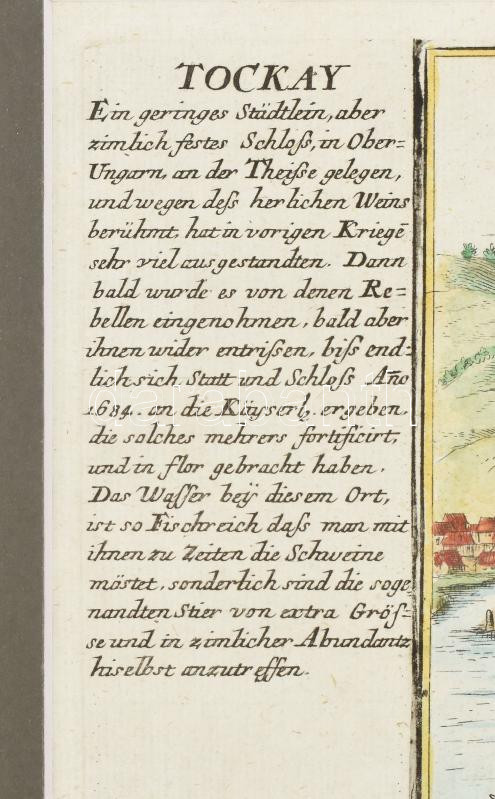 TOCKAY
Ein geringes Städtlein, aber
zimlich festes Schloß, in Ober=
Ungarn, an der Theiße gelegen,
und wegen deß herlichen Weins
berühmt, hat in vorigen Kriegē
sehr viel ausgestandten. Dann
bald wurde es von denen Re=
bellen eingenohmen, bald aber
ihnen wider entrißen, biß end=
lich sich Statt und Schloß Año
1684. an die Käyserl. ergeben,
die solches mehrers fortificirt,
und in flor gebracht haben.
Das Waßer beÿ diesem Ort,
ist so Fischreich daß man mit
ihnen zu Zeiten die Schweine
mästet, sonderlich sind die soge
nandten Stier von extra Grös=
se und in zimlicher Abundantz
hiselbst anzutreffen.
darabanth